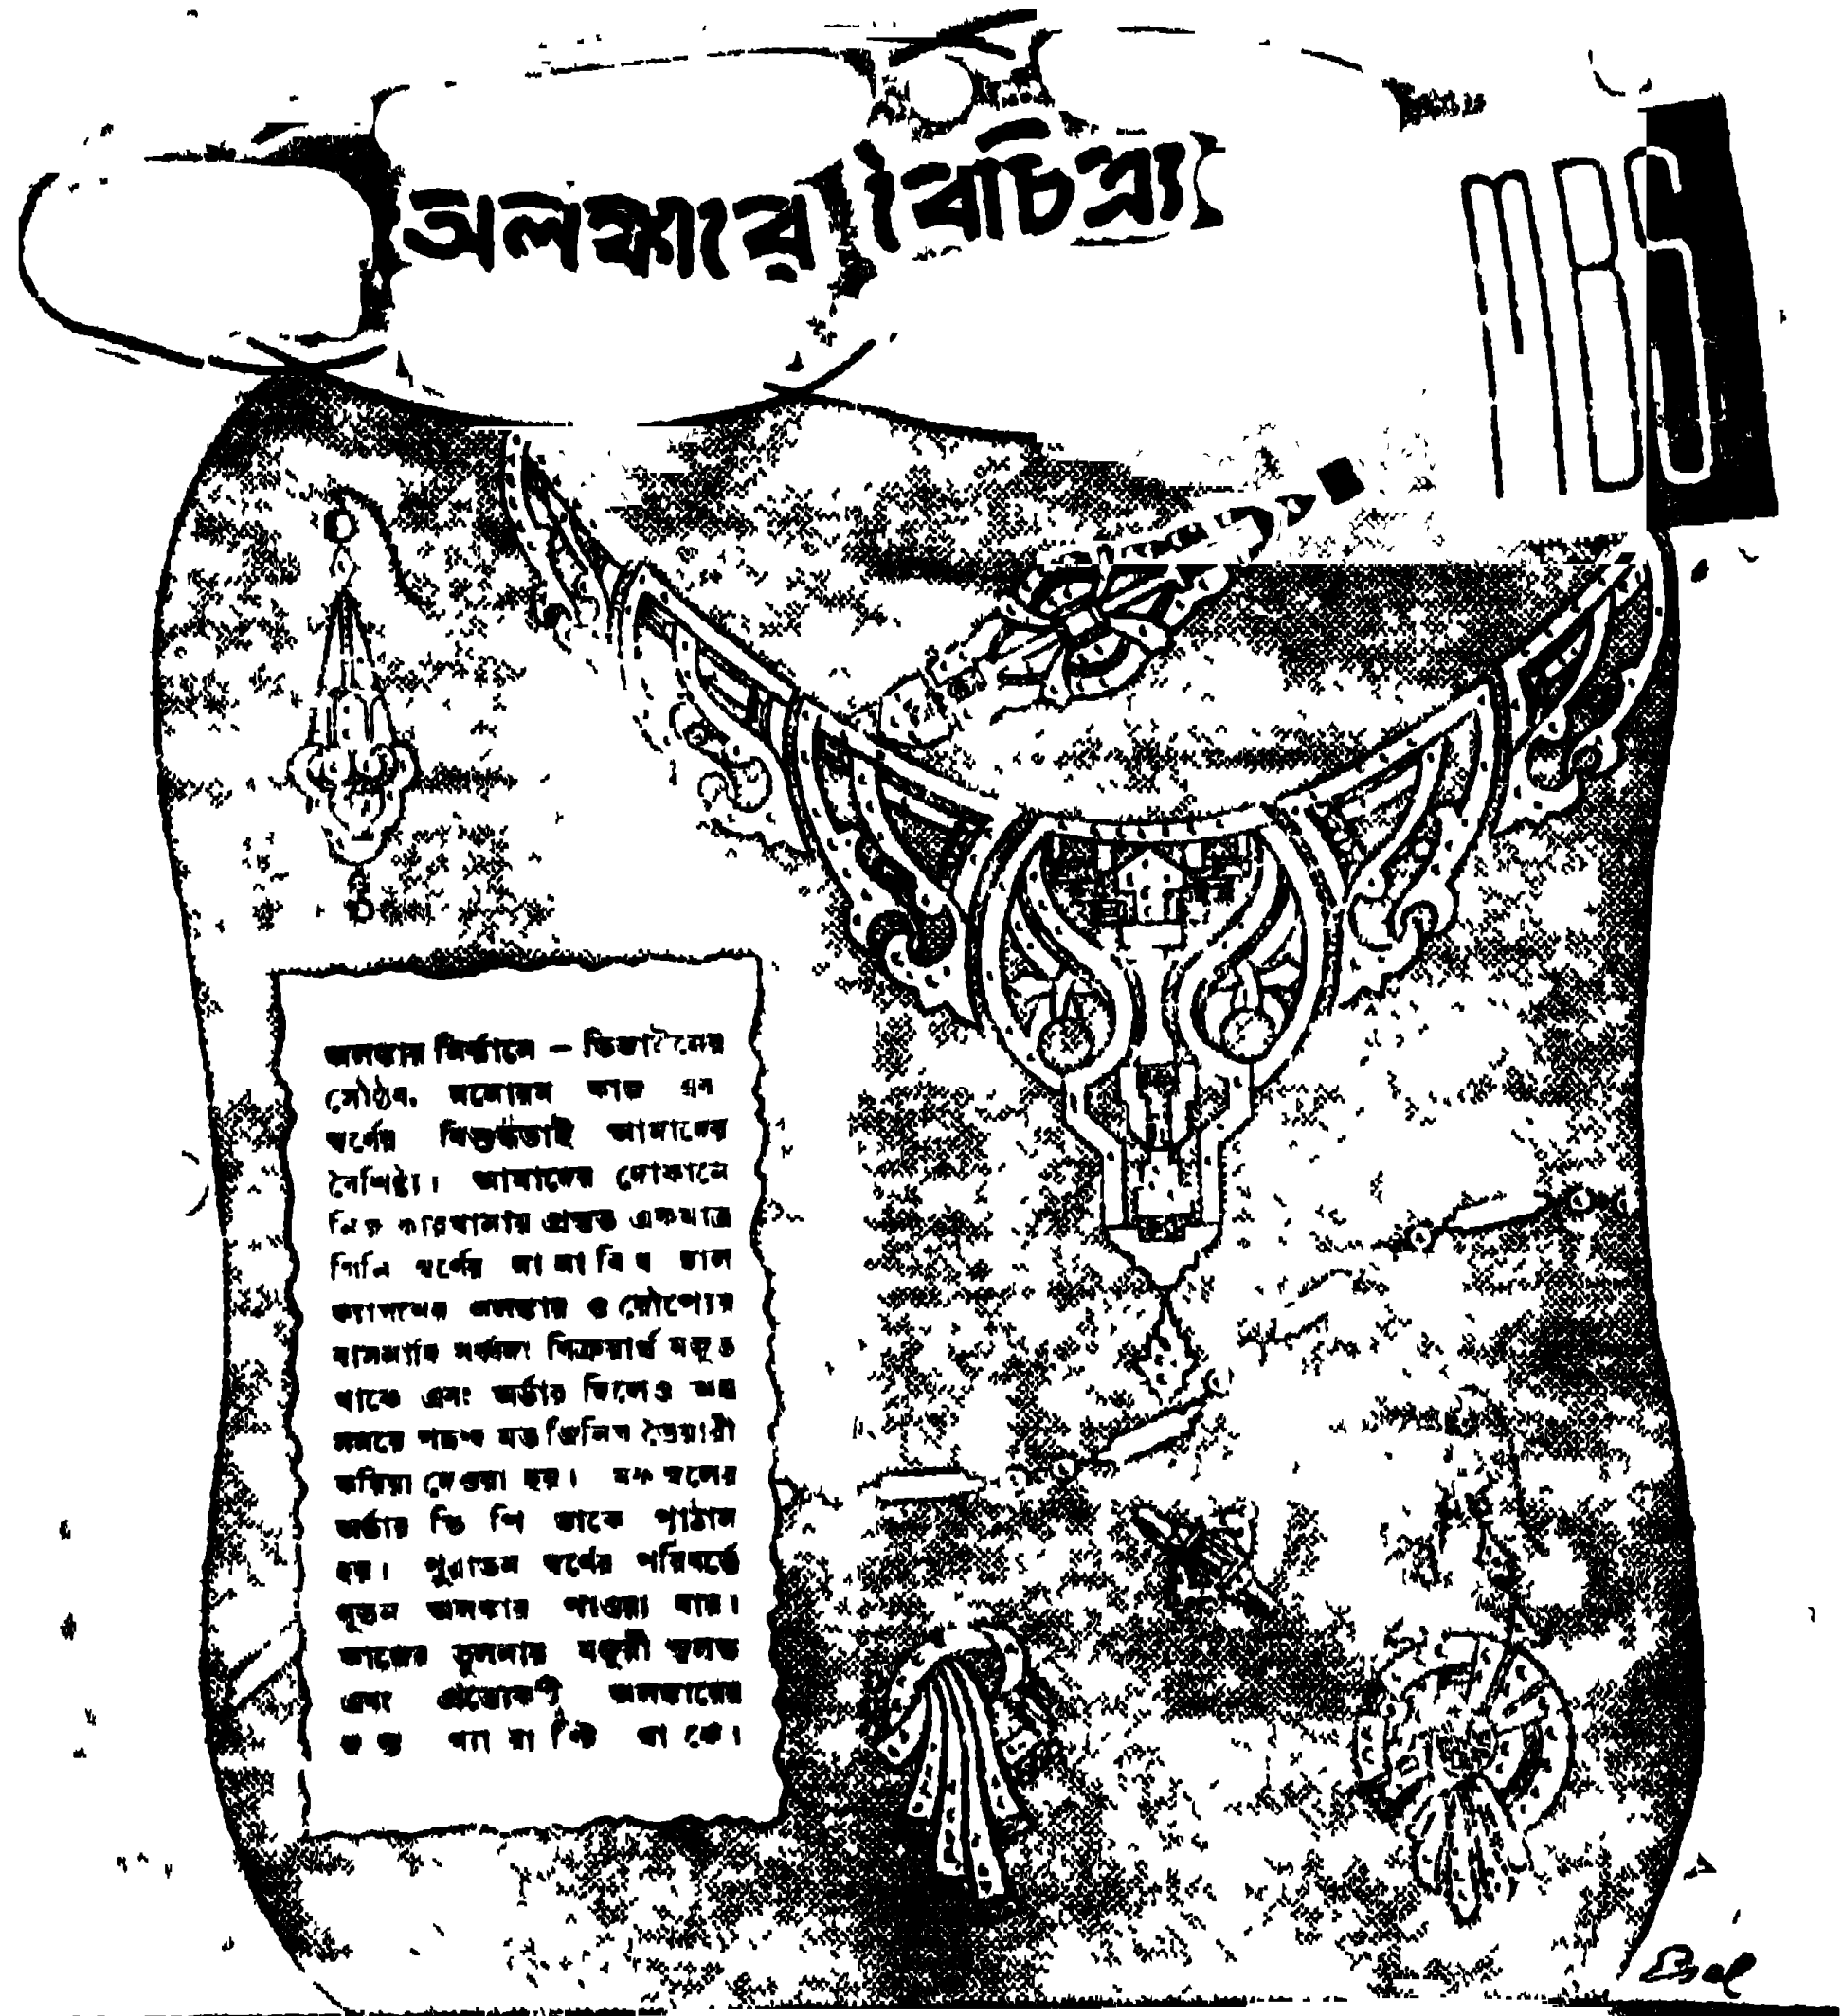 অলঙ্কারে বৈচিত্র্য
MBS
অলঙ্কার নির্ম্মানে – ডিজাইনের
সৌষ্ঠব, মনোরম কাজ এবং
স্বর্ণের বিশুদ্ধতাই আমাদের
বৈশিষ্ট্য। আমাদের দোকানে
নিজ কারখানায় প্রস্তুত একমাত্র
গিনি স্বর্ণের নানাবিধ হাল
ফ্যাসানের অলঙ্কার ও রৌপ্যের
বাসনাদি সর্ব্বদা বিক্রয়ার্থ মজুত
থাকে এবং অর্ডার দিলেও অল্প
সময়ে পছন্দ মত জিনিষ তৈয়ারী
করিয়া দেওয়া হয়। মফঃস্বলের
অর্ডার ভি পি ডাকে পাঠান
হয়। পুরাতন স্বর্ণের পরিবর্ত্তে
নূতন অলঙ্কার পাওয়া যায়।
কাজের তুলনায় মজুরী সুলভ
এবং প্রত্যেকটী অলঙ্কারের
জন্য গ্যারান্টি থাকে।